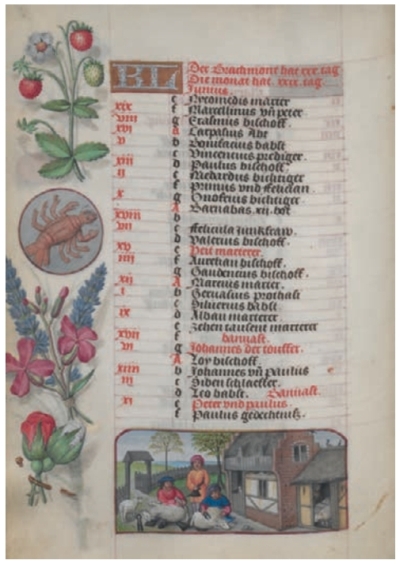 KL Der Brachmont hat xxx tag
Die monat hat xxx tag
Junius
e Nicomedis marter
xix f Marcellinus vñ peter
viii g Erasmus bischoff
xvi A Carpasius Abt
v b Bonifacius babst
c Vincentius prediger
xiii d Paulus bischoff
ii e Medardus bichtiger
f Primus vnd felician
x g Onofrius bichtiger
A Barnabas xii bot
xviii b
vii c felicula junkfraw
d Valerius bischoff
xv e Veit marterer
iiii f Aurelian bischoff
g Gaudencius bischoff
xii A Marcus marter
i b Geruasius prothasi
c Siluerius babst
ix d Alban marterer
e zehen tausent marterer
xvii f banuast
vi g Johannes der touffer
A Loy bischoff
xiiii b Johannes vñ paulus
iii c Siben schlaeffer
d Leo babst banuast
xi e Peter vnd paulus
f Paulus gedechtnuß